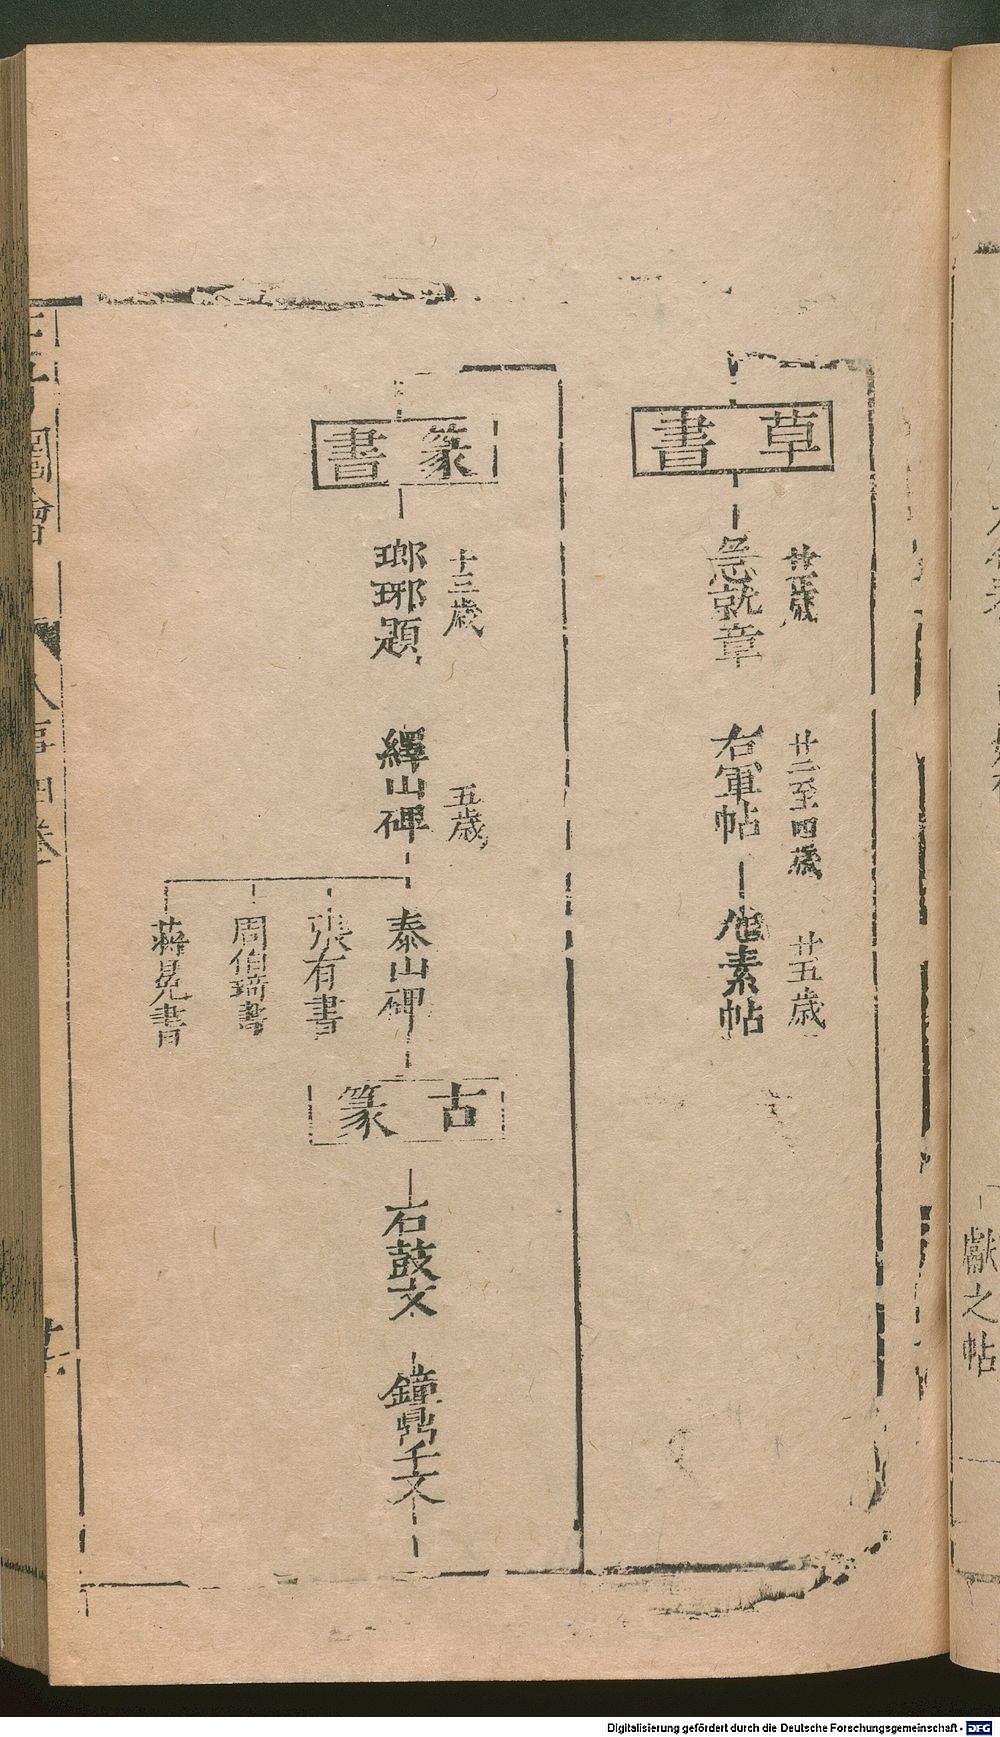 草書
急就章
右軍帖
素帖
廿二至四歲
廿五歲
篆書
十三歲
瑯琊題
五歲
繹山碑
泰山碑
張有書
周伯琦書
蔣冕書
古篆
石鼓文
鐘鼎千文
圖會
人事四卷
獻之帖
Digitalisierung gefördert durch die Deutsche Forschungsgemeinschaft - DFG